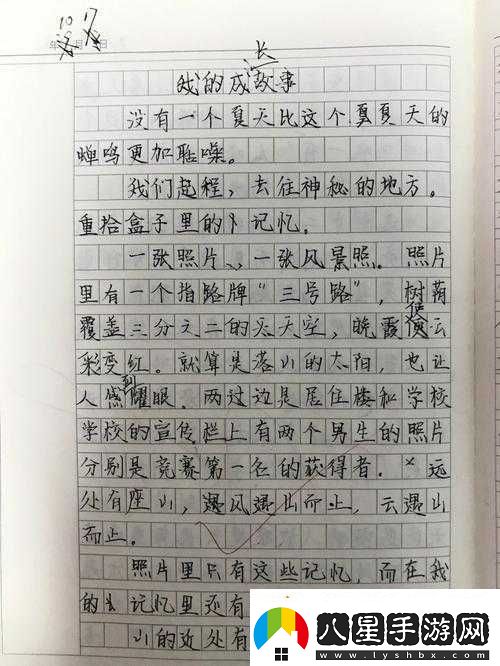 10 17
年 月 日
我的成长故事
没有一个夏天比这个夏夏天的
蝉鸣更加聒噪。
我们起程，去往神秘的地方。
重拾盒子里的记忆。
一张照片、一张风景照。照片
里有一个指路牌“三号路”，树荫
覆盖三分之二的天空，晚霞使云
彩变红。就算是落山的太阳，也让
人感到耀眼。两过边是居住楼和学校
学校的宣传栏上有两个男生的照片
分别是竞赛第一名的获得者。远
处有座山，遇风遇山而止，云遇山
而止。
照片里只有这些记忆，而在我
的记忆里还有
山的近处有
八星手游网
www.lyshbx.com